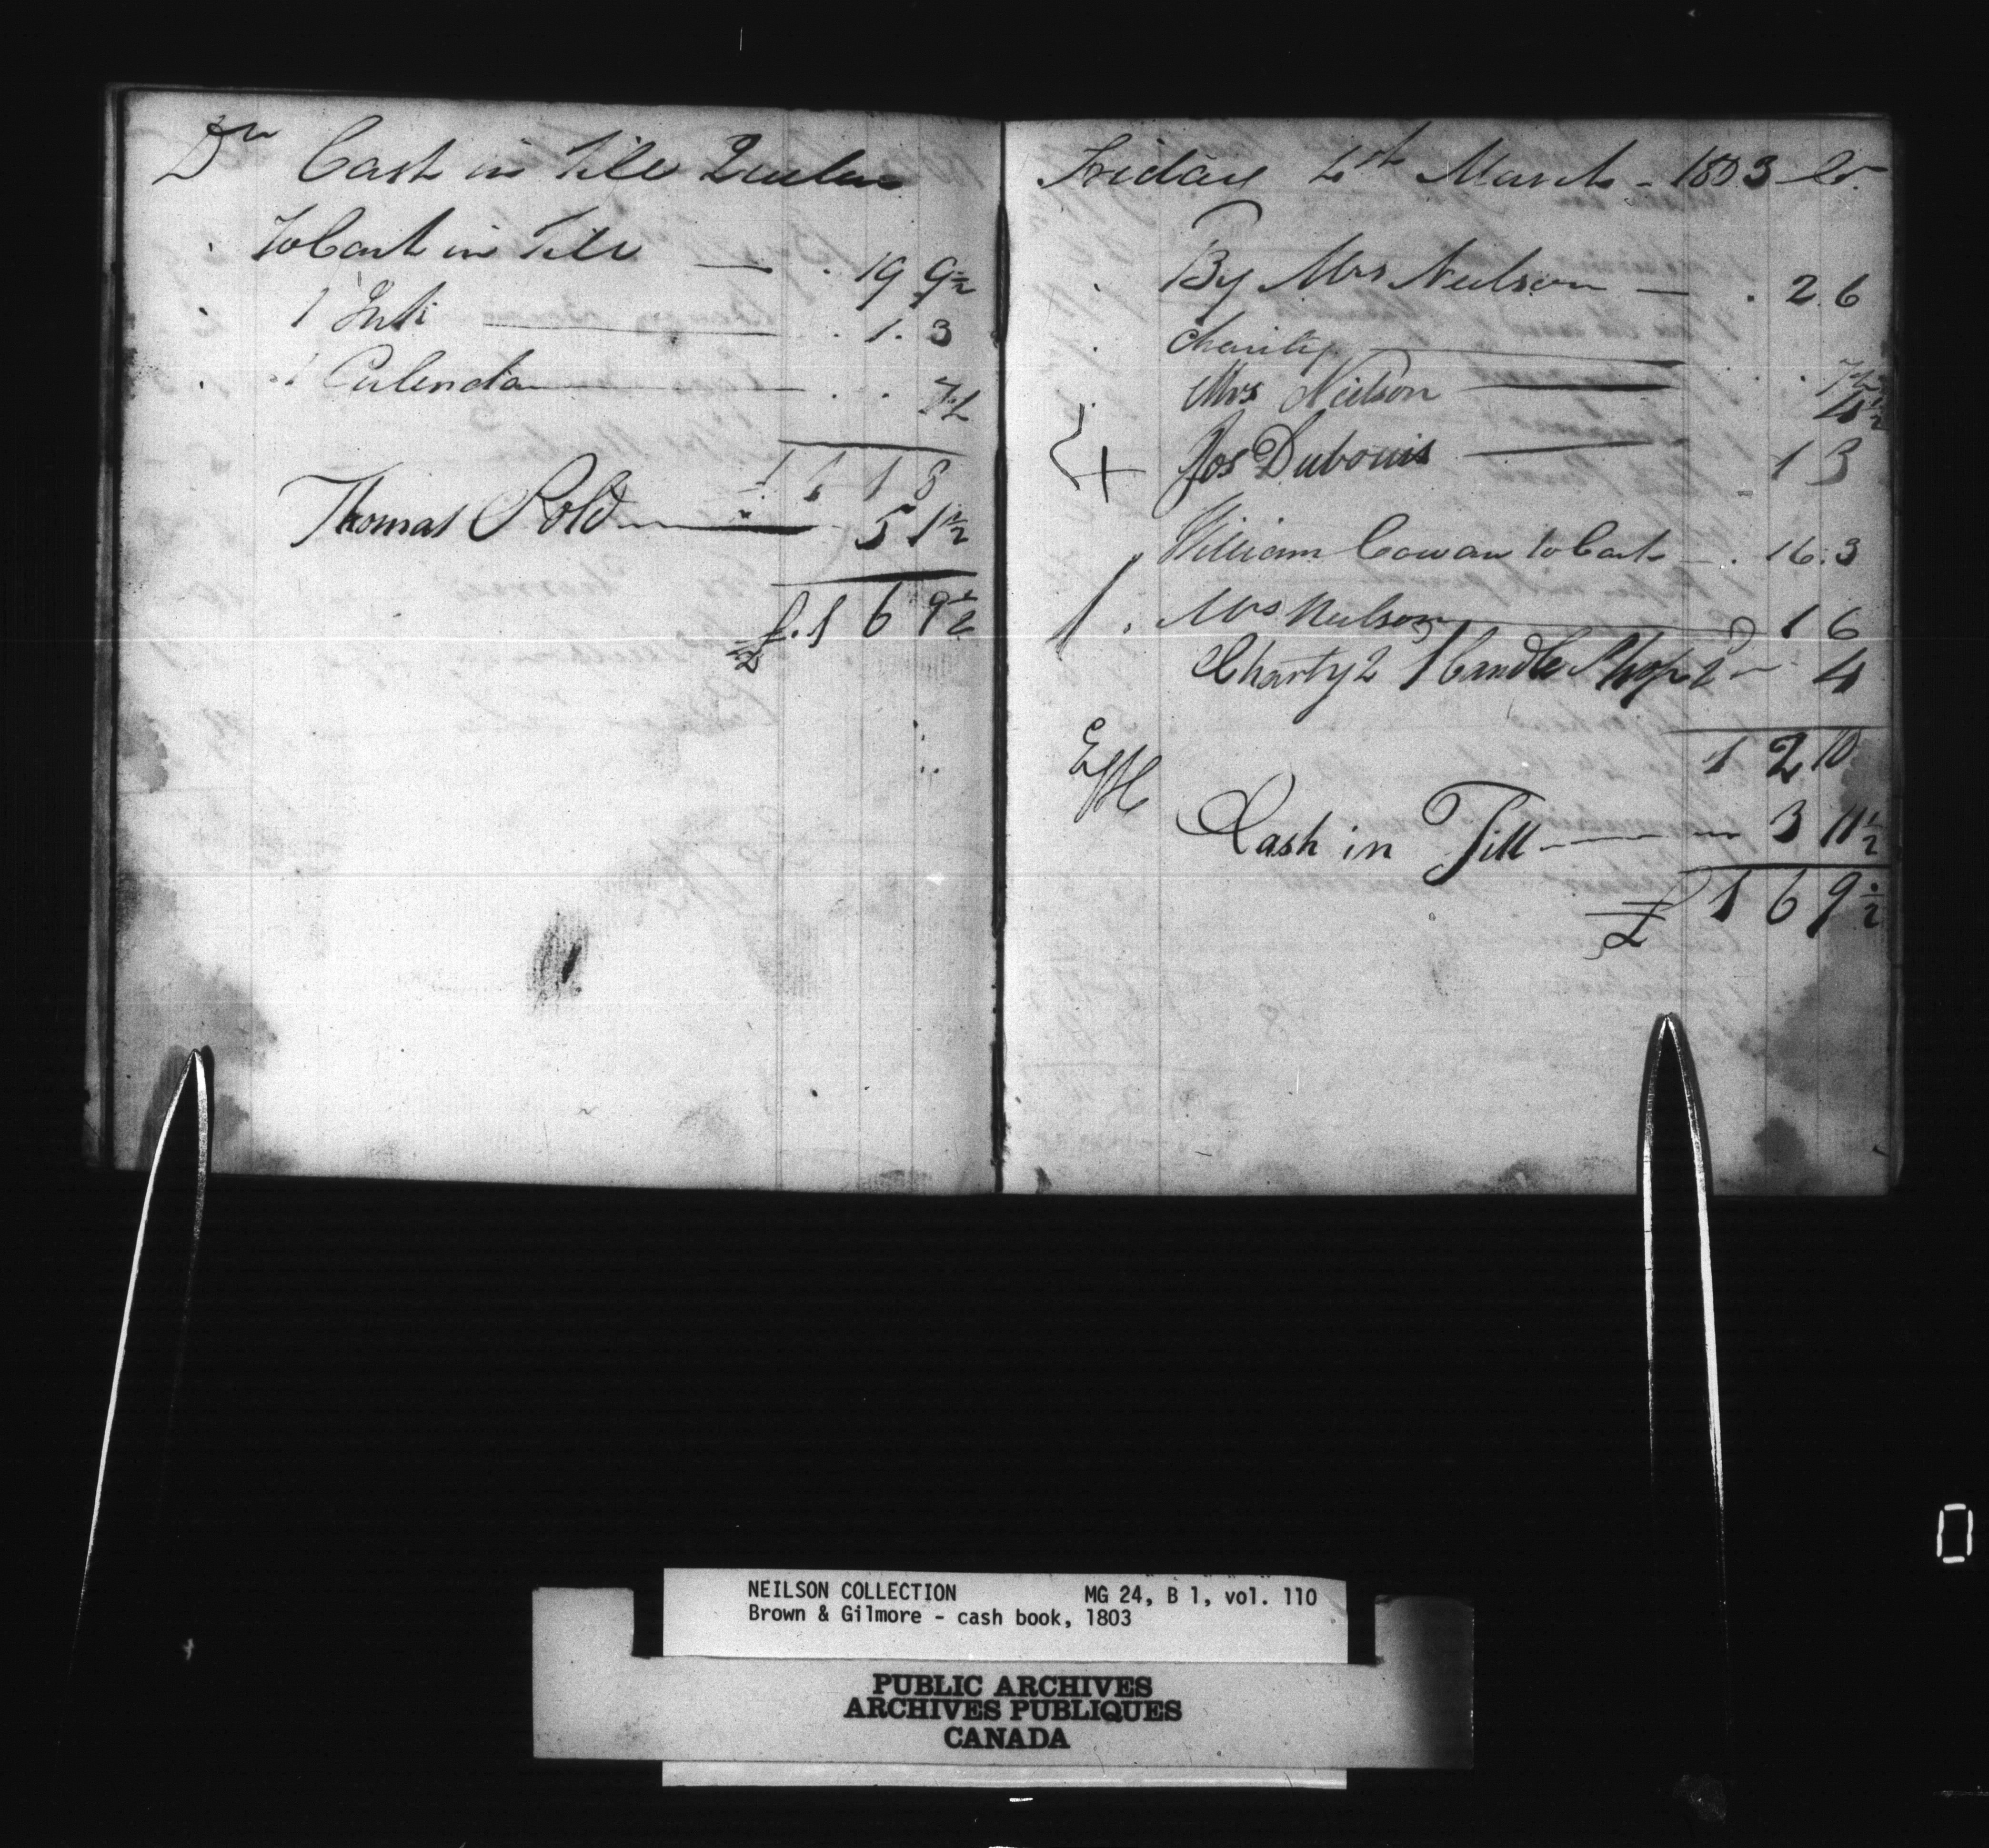 Dr Cash in Till Quebec
To Cash in Till — 19 9½
1 Ink — 1. 3
1 Calendar — 7½
1 1 8
Thomas Sold — 5 1½
£. 1 6 9½
Friday 4th March - 1803 Cr.
By Mrs Neilson — 2. 6
Charity — 7½
Mrs Neilson — 4½
+ Jos Dubouis — 1 3
William Cowan to Cash — 16. 3
Mrs Neilson — 1 6
Charty 2 1 Candle Shop 2 — 4
1 2 10
Cash in Till — 3 11½
£ 1 6 9½
NEILSON COLLECTION MG 24, B 1, vol. 110
Brown & Gilmore - cash book, 1803
PUBLIC ARCHIVES
ARCHIVES PUBLIQUES
CANADA